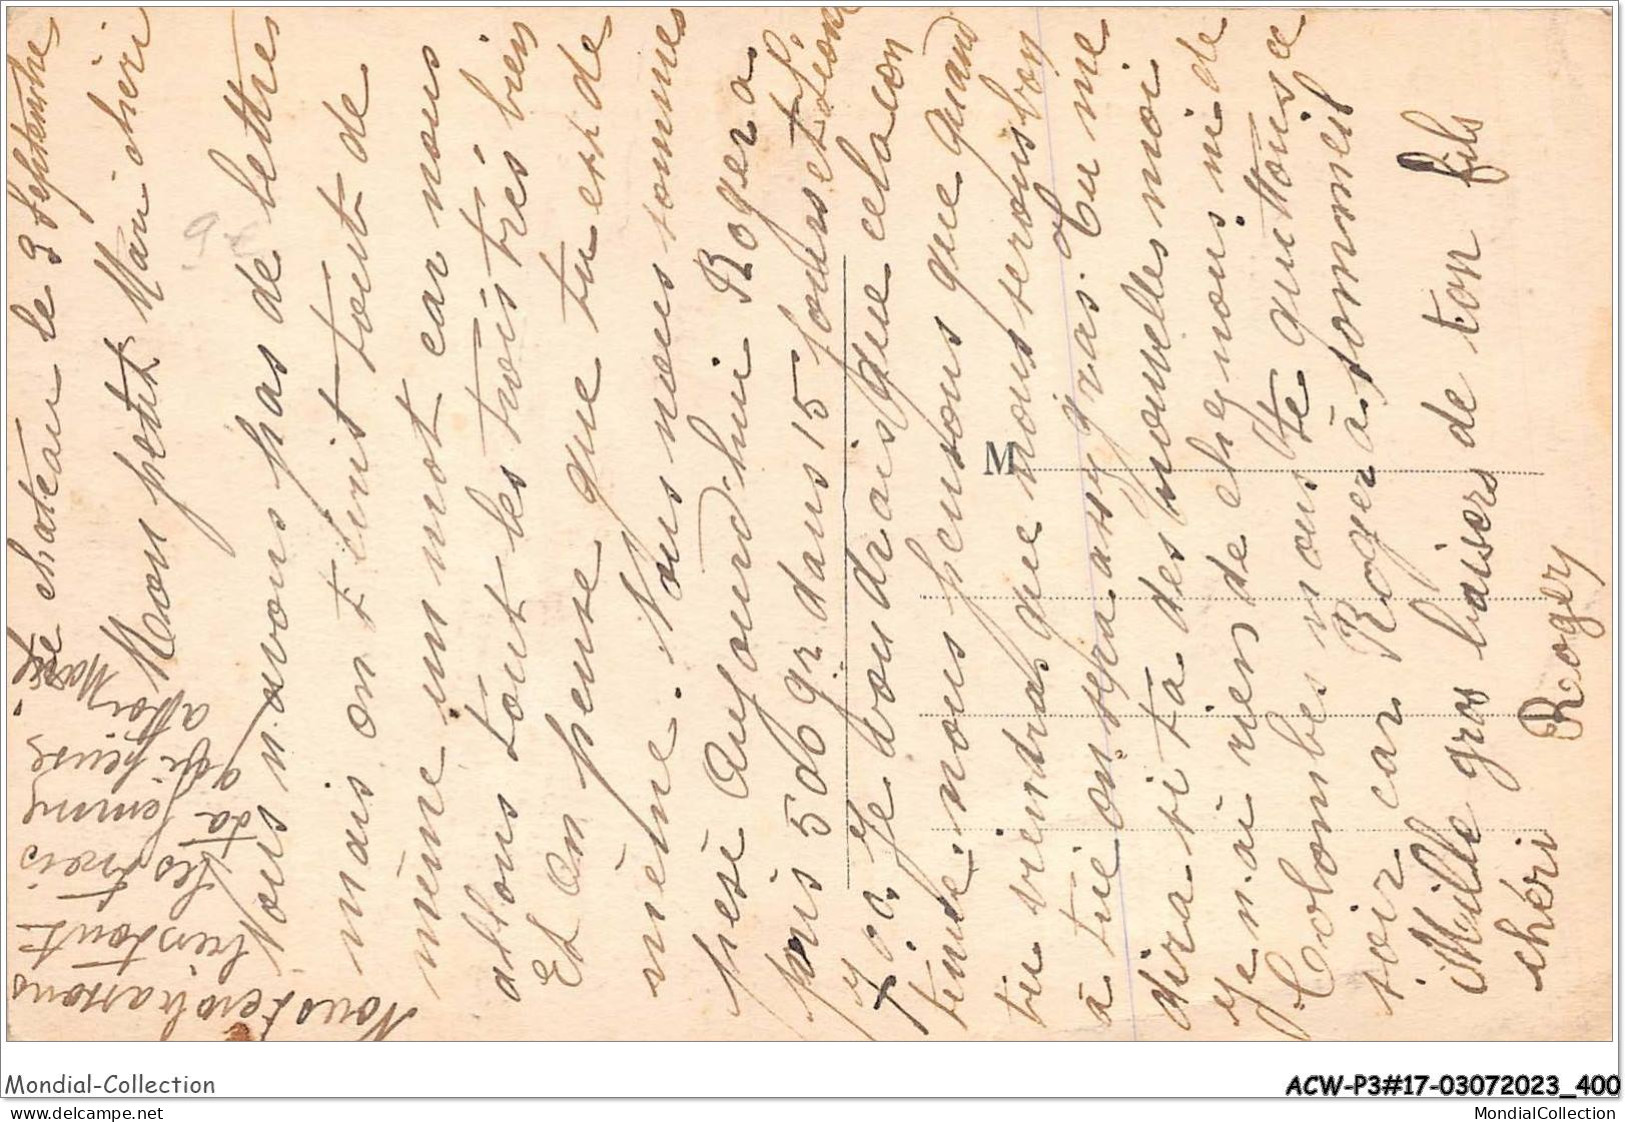 le chateau le 3 Septembre
Mon petit Mari chéri
Nous n'avons pas de lettres
mais on t'écrit tout de
même un mot car nous
allons tout les trois très bien
Et on pense que tu est de
même. Nous nous sommes
pesé Aujourd'hui Roger a
pris 5 do gr dans 15 jours et Léon
Je voudrais que cela con
tinue. nous pensons que quand
tu viendras que nous serons bon
à tué on sera assy gras. Tu me
dira si ta des nouvelles moi
Je n'ai rien de chez nous ni de
Colombes nous te quittons ce
soir car Roger à sommeil
Mille gros baisers de ton fils
chéri Roger
Nous t'embrassons
bien tout
les trois
ta femme
qui pense
à toi
Marie
M
Mondial-Collection
ACW-P3#17-03072023_400
www.delcampe.net
MondialCollection